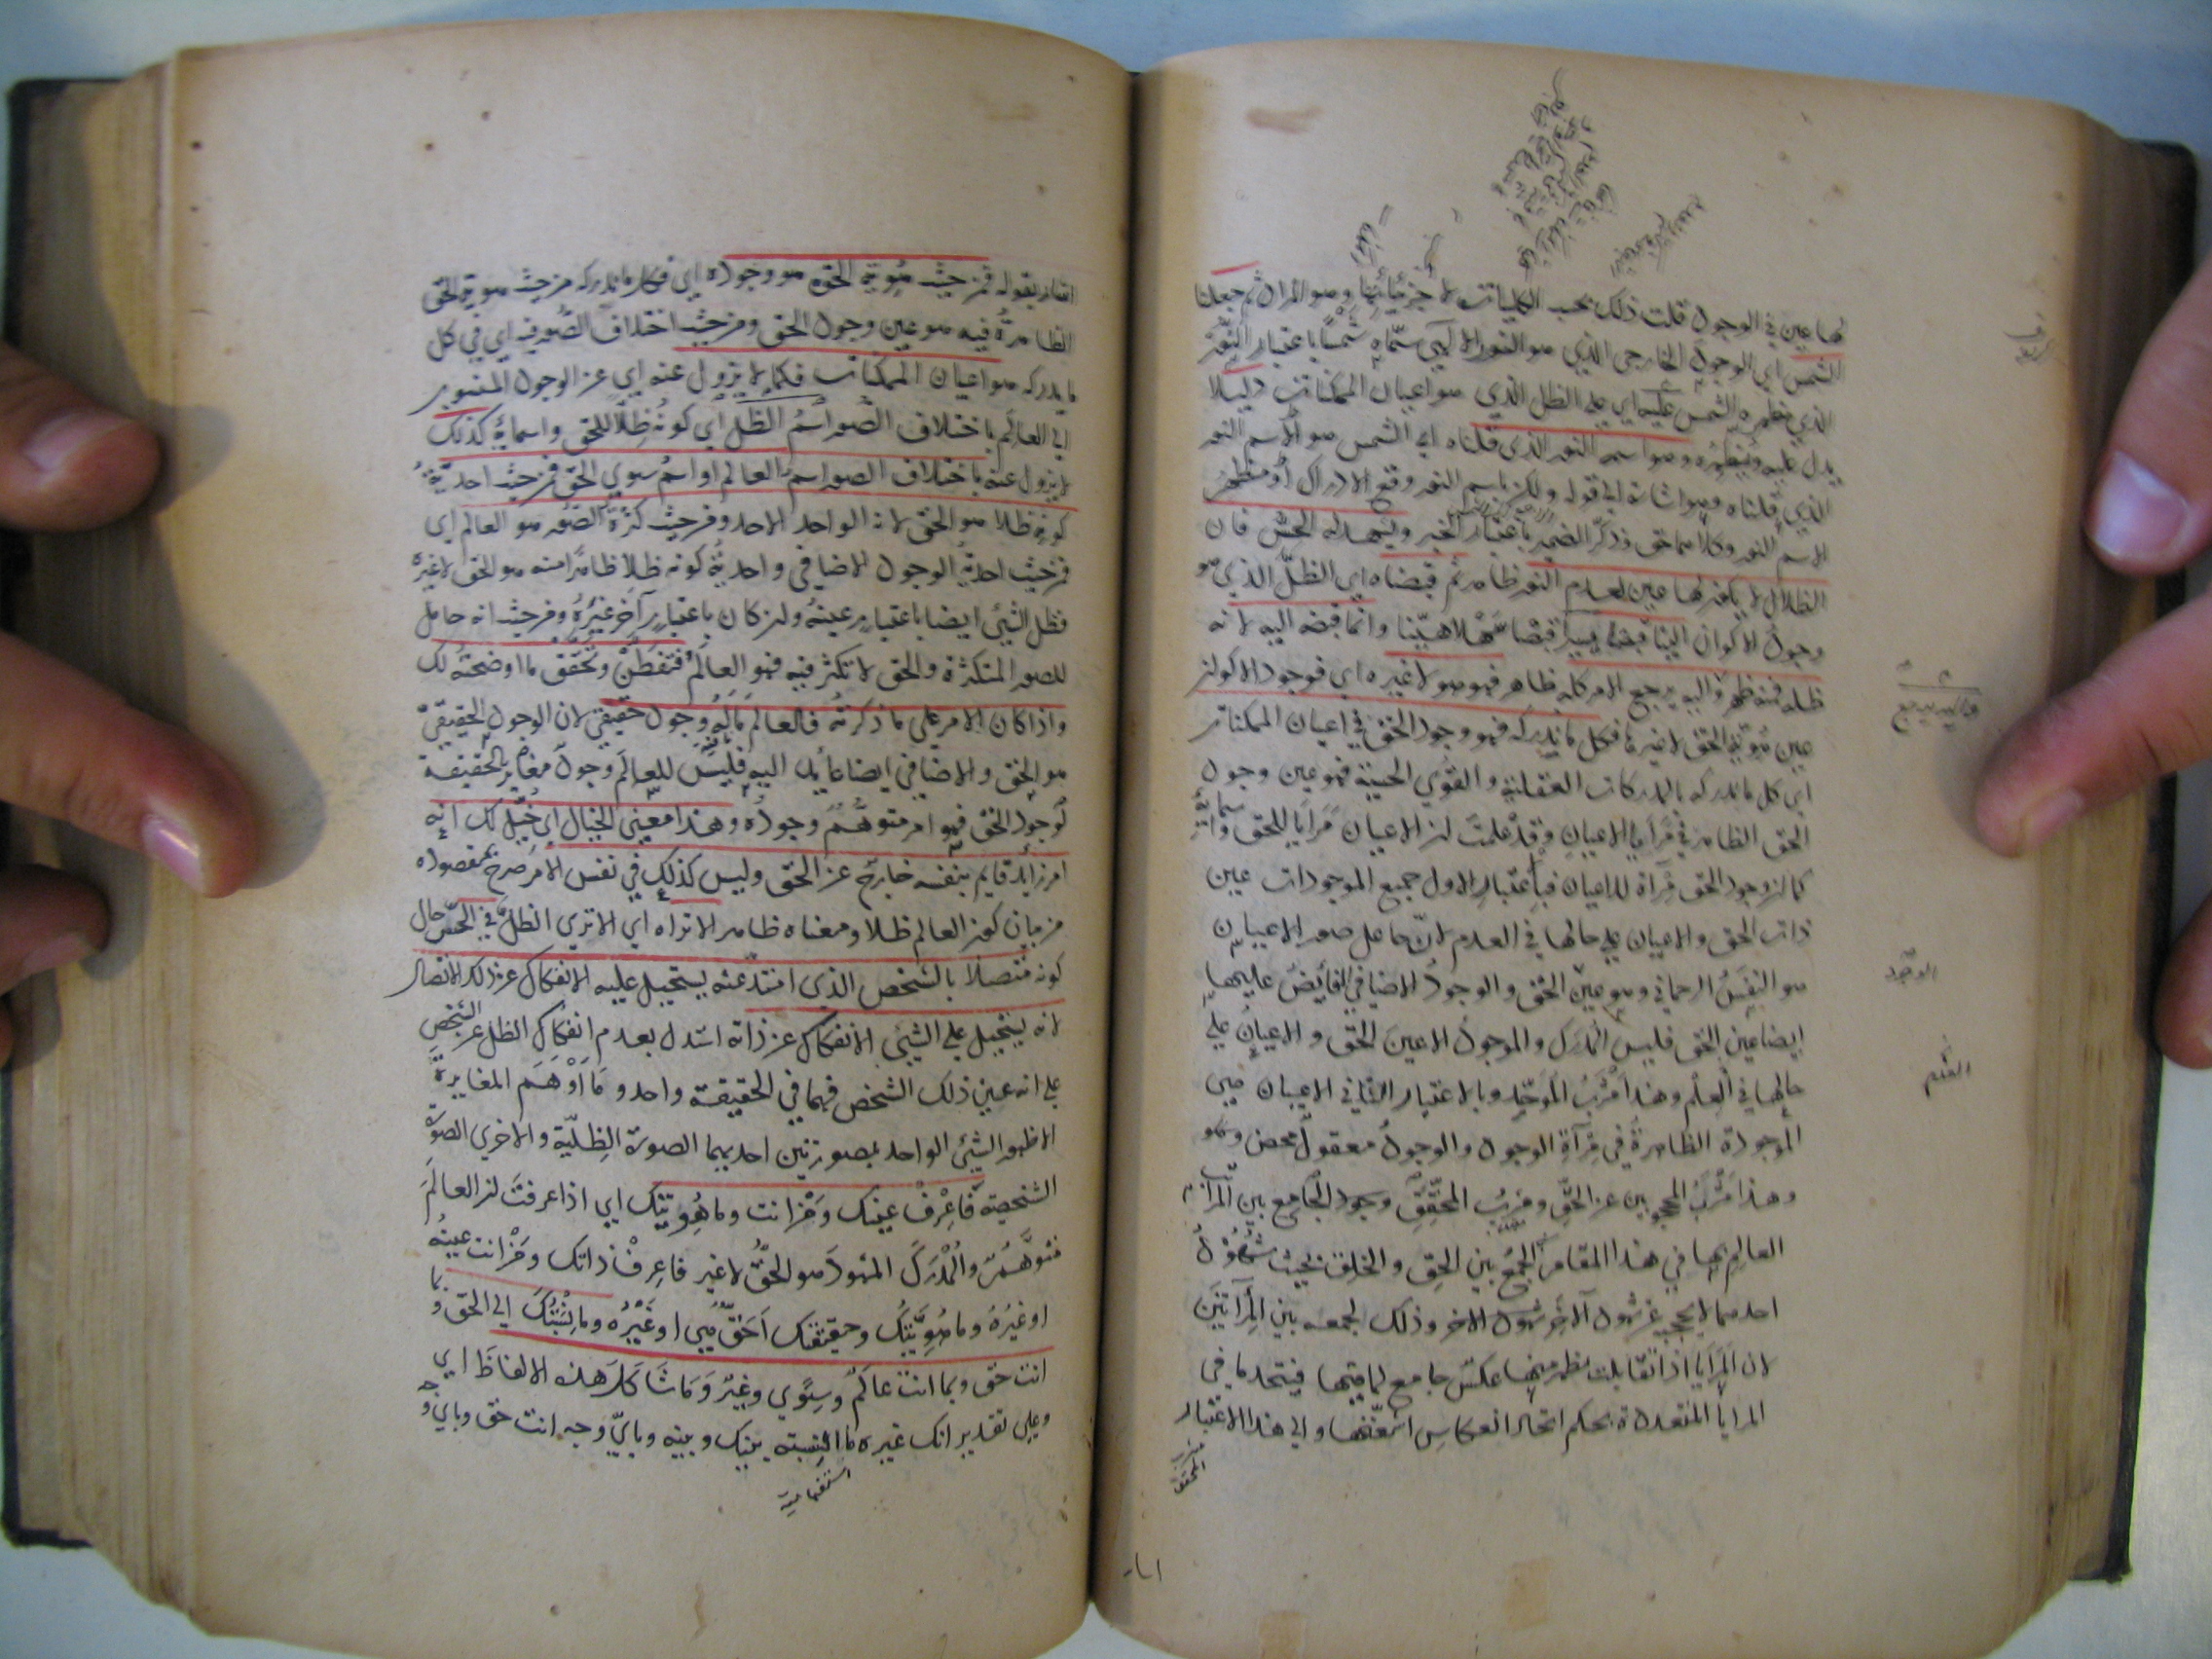 لها عين في الوجود قلت ذلك بحسب الكليات لا جزئياتها وهو المراد ثم جعلنا
الشمس اي الوجود الخارجي الذي هو النور الالهي سمّاه شمسا باعتبار النور
الذي يظهره الشمس عليه اي على الظل الذي هو اعيان الممكنات دليلا
يدل عليه ويظهره وهو اسمه النور الذي قلناه اي الشمس هو الاسم النور
الذي قلناه وهو اشارة الى قوله ولكن باسم النور وقع الادراك او مظهر
الاسم النور وكلاهما حق وذكّر الضمير باعتبار الخبر ويشهد له الحسّ فان
الظلال لا يكون لها عين بعدم النور ظاهر ثم قبضناه اي الظلّ الذي هو
وجود الاكوان الينا قبضا يسيرا قبضا سهلا هيّنا وانما قبضه اليه لانه
ظله فمنه ظهر واليه يرجع الامر كله ظاهر فهو هو لا غيره اي فوجود الاكوان
عين هويّة الحق لا غيرها فكل ما ندركه فهو وجود الحق في اعيان الممكنات
اي كل ما ندركه بالمدركات العقلية والقوى الحسية فهو عين وجود
الحق الظاهر في مرايا الاعيان وقد علمت ان الاعيان مرايا للحق واسمائه
كما ان وجود الحق مرآة للاعيان فباعتبار الاول جميع الموجودات عين
ذات الحق والاعيان على حالها في العدم لانّ حامل صور الاعيان
هو النفس الرحماني وهو عين الحق والوجود الاضافي الفايض عليها
ايضا عين الحق فليس المدرك والموجود الا عين الحق والاعيان على
حالها في العلم وهذا مشرب الموحّد وبالاعتبار الثاني الاعيان هي
الموجودة الظاهرة في مرآة الوجود والوجود معقول محض وهو
وهذا مشرب المحجوبين عن الحق ومشرب المحقق وهو الجامع بين المراتب
العالم بها في هذا المقام الجمع بين الحق والخلق بحيث شهود
احدهما لا يحجب عن شهود الآخر شهود الاخر وذلك لجمعه بين المرآتين
لان المرايا اذا تقابلت يظهر منها عكس جامع لما فيها فيتحد ما في
المرايا المتعددة بحكم اتحاد انعكاس اشعّتها والى هذا الاعتبار
مشرب
المحقق
اشار
الموحّد
العلم
اشار بقوله فمن حيث هوية الحق هو وجوده اي فكل ما ندركه من حيث هوية الحق
الظاهرة فيه هو عين وجود الحق ومن حيث اختلاف الصّور فيه اي في كل
ما يدركه هو اعيان الممكنات فكما لا يزول عنه اي عن الوجود المنسوب
الى العالم باختلاف الصّور اسم الظل اي كونه ظلا للحق واسمائه كذلك
لا يزول عنه باختلاف الصور اسم العالم او اسم سوى الحق فمن حيث احديّة
كونه ظلا هو الحق لانه الواحد الاحد ومن حيث كثرة الصّور هو العالم اي
فمن حيث احدية الوجود الاضافي واحدية كونه ظلا ظاهرا منه هو الحق لا غيره
فظل الشيئ ايضا باعتبار عينه وان كان باعتبار آخر غيره ومن حيث انه حامل
للصور المتكثرة والحق لا تكثر فيه فهو العالم فتفطن وتحقق ما اوضحته لك
واذا كان الامر على ما ذكرته فالعالم ماله وجود حقيقي لان الوجود الحقيقيّ
هو الحق والاضافي ايضا عائد اليه فليس للعالم وجود مغاير بالحقيقة
لوجود الحق فهو امر متوهّم وجوده وهذا معنى الخيال اي خيّل لك انه
امر زايد قايم بنفسه خارج عن الحق وليس كذلك في نفس الامر صرح بمقصوده
من بيان كون العالم ظلا ومعناه ظاهر الا تراه اي الا ترى الظل في الحسّ حال
كونه متصلا بالشخص الذي امتدّ عنه يستحيل عليه الانفكاك عن ذلك الاتصال
لانه يستحيل على الشيئ الانفكاك عن ذاته استدل بعدم انفكاك الظل عن الشخص
على انه عين ذلك الشخص فهما في الحقيقة واحد وما اوهم المغايرة
الا ظهور الشيئ الواحد بصورتين احديهما الصورة الظلّية والاخرى الصورة
الشخصية فاعرف عينك ومن انت وما هويّتك اي اذا عرفت ان العالم
متوهّم والمدرك المشهود هو الحق لا غير فاعرف ذاتك ومن انت عينه
او غيره وما هويّتك وحقيقتك احق هي او غيره وما نسبتك الى الحق وبما
انت حق وبما انت عالم وسوى وغير وما شاكل هذه الالفاظ اي
وعلى تقدير انك غيره ما النسبة بينك وبينه وبايّ وجه انت حق وبايّ وجه
استفهامية